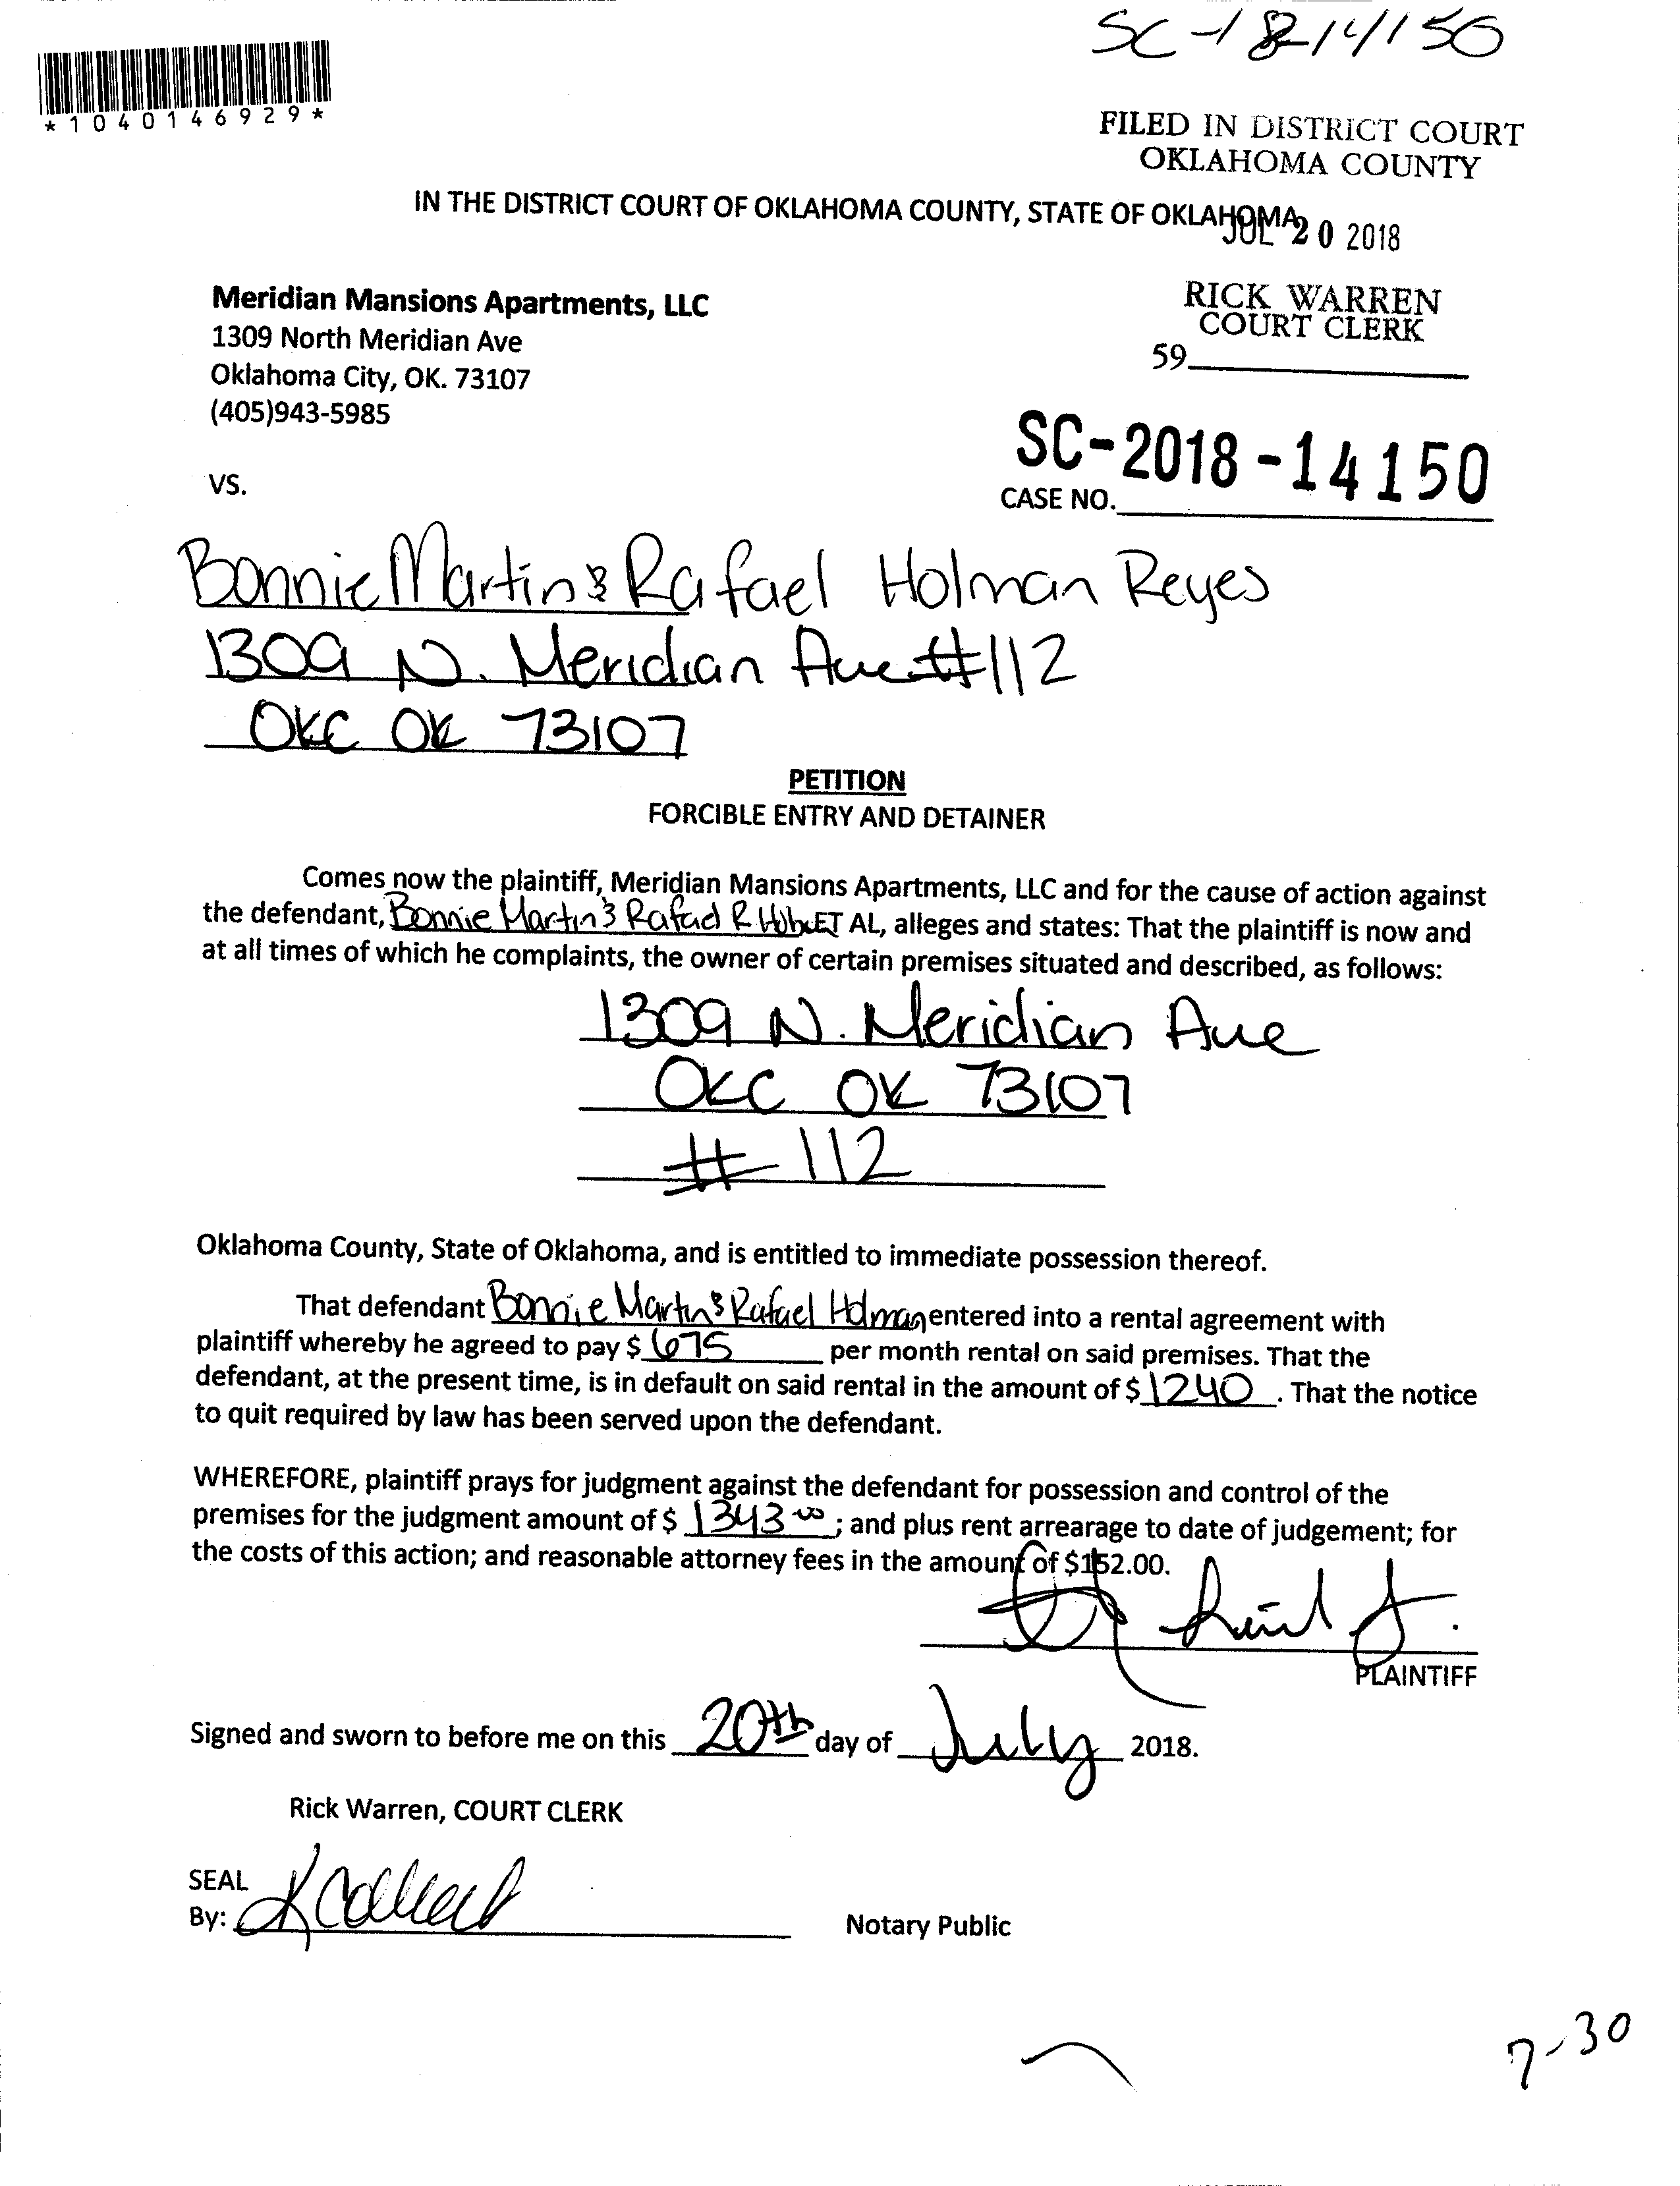 SC-18-14150
*1040146929*
FILED IN DISTRICT COURT
OKLAHOMA COUNTY
IN THE DISTRICT COURT OF OKLAHOMA COUNTY, STATE OF OKLAHOMA
JUL 20 2018
Meridian Mansions Apartments, LLC
1309 North Meridian Ave
Oklahoma City, OK. 73107
(405)943-5985
RICK WARREN
COURT CLERK
59
VS.
SC-2018-14150
CASE NO.
Bonnie Martin & Rafael Holman Reyes
1309 N. Meridian Ave #112
OKC OK 73107
PETITION
FORCIBLE ENTRY AND DETAINER
Comes now the plaintiff, Meridian Mansions Apartments, LLC and for the cause of action against
the defendant, Bonnie Martin & Rafael R ET AL, alleges and states: That the plaintiff is now and
at all times of which he complaints, the owner of certain premises situated and described, as follows:
1309 N. Meridian Ave
OKC OK 73107
# 112
Oklahoma County, State of Oklahoma, and is entitled to immediate possession thereof.
That defendant Bonnie Martin & Rafael Holman entered into a rental agreement with
plaintiff whereby he agreed to pay $ 675 per month rental on said premises. That the
defendant, at the present time, is in default on said rental in the amount of $ 1240. That the notice
to quit required by law has been served upon the defendant.
WHEREFORE, plaintiff prays for judgment against the defendant for possession and control of the
premises for the judgment amount of $ 1343.00; and plus rent arrearage to date of judgement; for
the costs of this action; and reasonable attorney fees in the amount of $152.00.
PLAINTIFF
Signed and sworn to before me on this 20th day of July 2018.
Rick Warren, COURT CLERK
SEAL
By:
Notary Public
7-30